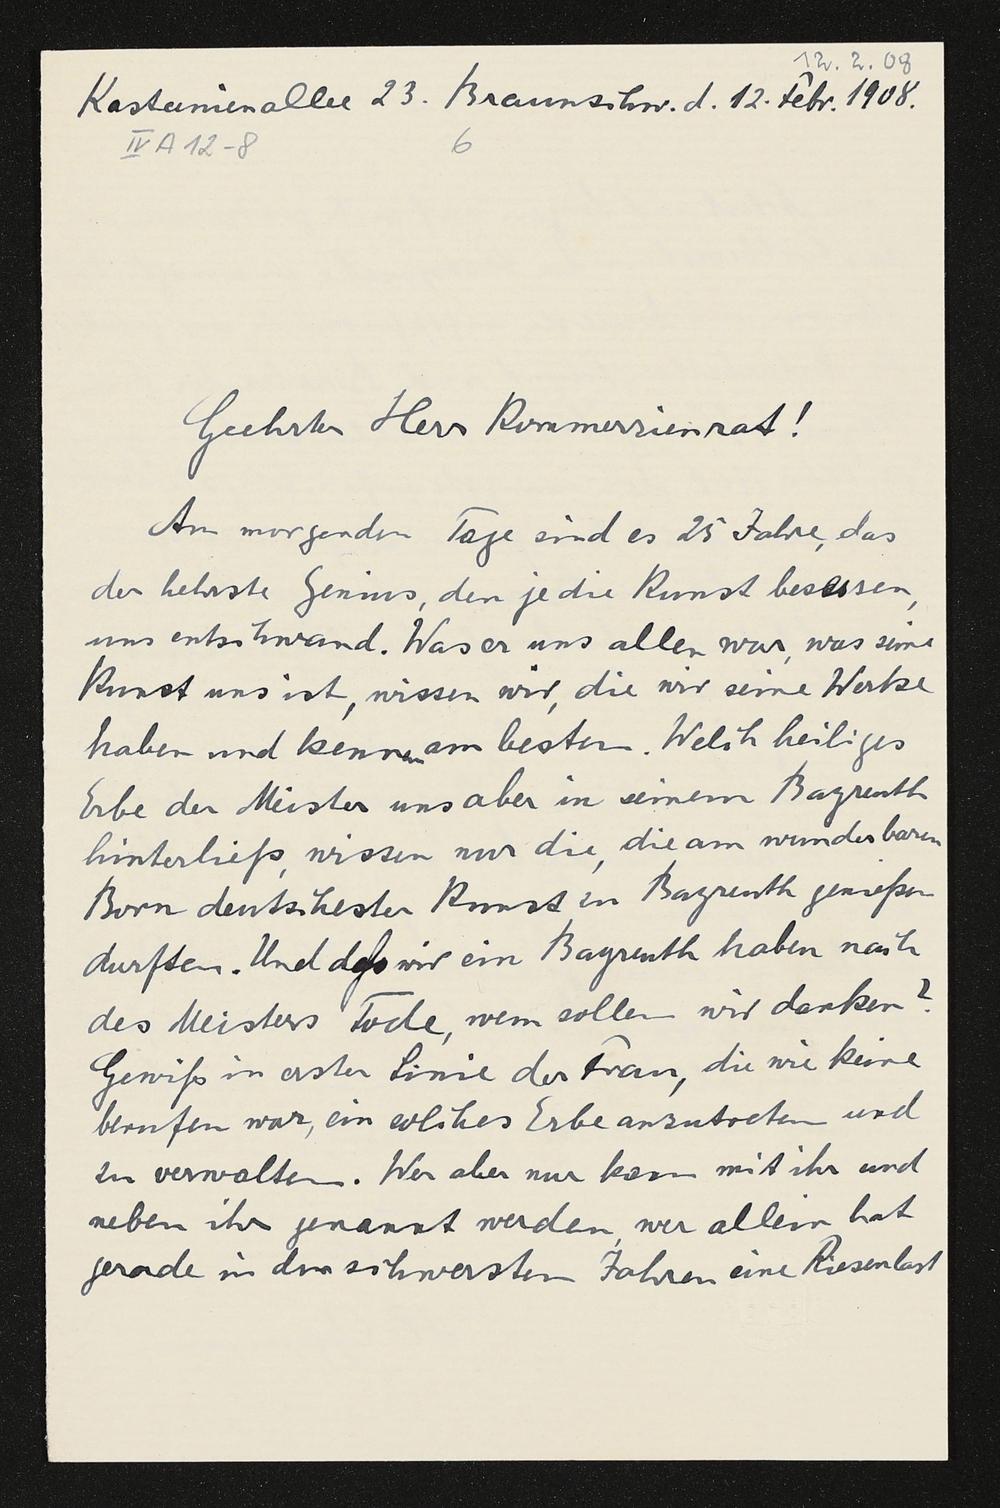 12. 2. 08
Kastanienallee 23. Braunschw. d. 12. Febr. 1908.
IV A 12-8 6
Geehrter Herr Kommerzienrat!
Am morgenden Tage sind es 25 Jahre, das
der hehrste Genius, den je die Kunst besessen,
uns entschwand. Was er uns allen war, was seine
Kunst uns ist, wissen wir, die wir seine Werke
haben und kennen am besten. Welch heiliges
Erbe der Meister uns aber in seinem Bayreuth
hinterließ, wissen nur die, die am wunderbaren
Born deutschester Kunst in Bayreuth genießen
durften. Und daß wir ein Bayreuth haben nach
des Meisters Tode, wem sollen wir danken?
Gewiß in erster Linie der Frau, die wie keine
berufen war, ein solches Erbe anzutreten und
zu verwalten. Wer aber nur kann mit ihr und
neben ihr genannt werden, wer allein hat
gerade in den schwersten Jahren eine Riesenlast